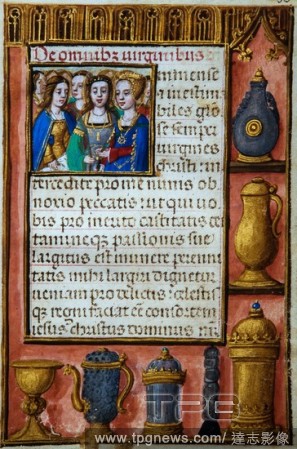 De omnibz virginibus
immense
et inestima
biles glo
se semper
virgines
christi in
tercedite pro me nimis ob
noxio peccatis ut qui vo
bis pro merito castitatis et
tamine qz passionis sue
largitus est munere perenni
tatis mihi largiri dignetur
veniam pro delictis celesti
qz regni faciat ee consortem
iesus christus dominus
TPG
www.tpgnews.com/達志影像